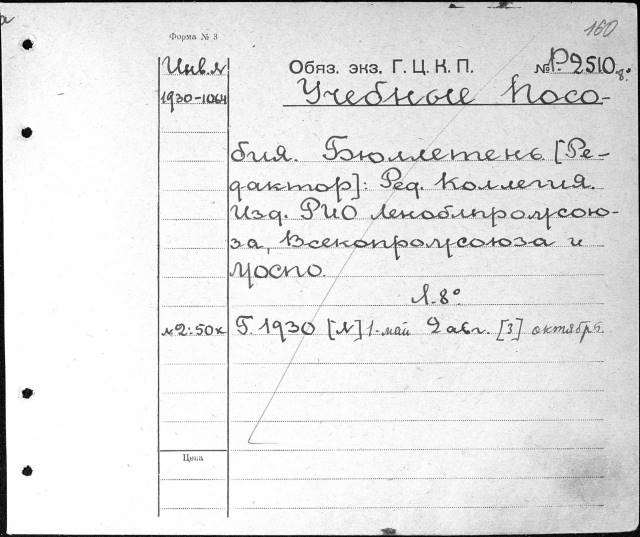 160
Форма № 3
Инв. №
Обяз. экз. Г. Ц. К. П. № Р. 2510 8°
1930-1064
Учебные Посо-
бия. Бюллетень. [Ре-
дактор]: Ред. Коллегия.
Изд. РИО Леноблпромсою-
за, Всекопромсоюза и
Моспо.
Л. 8°
№ 2: 50 к Г. 1930 [№] 1-май 2 авг. [3] октябрь.
Цена